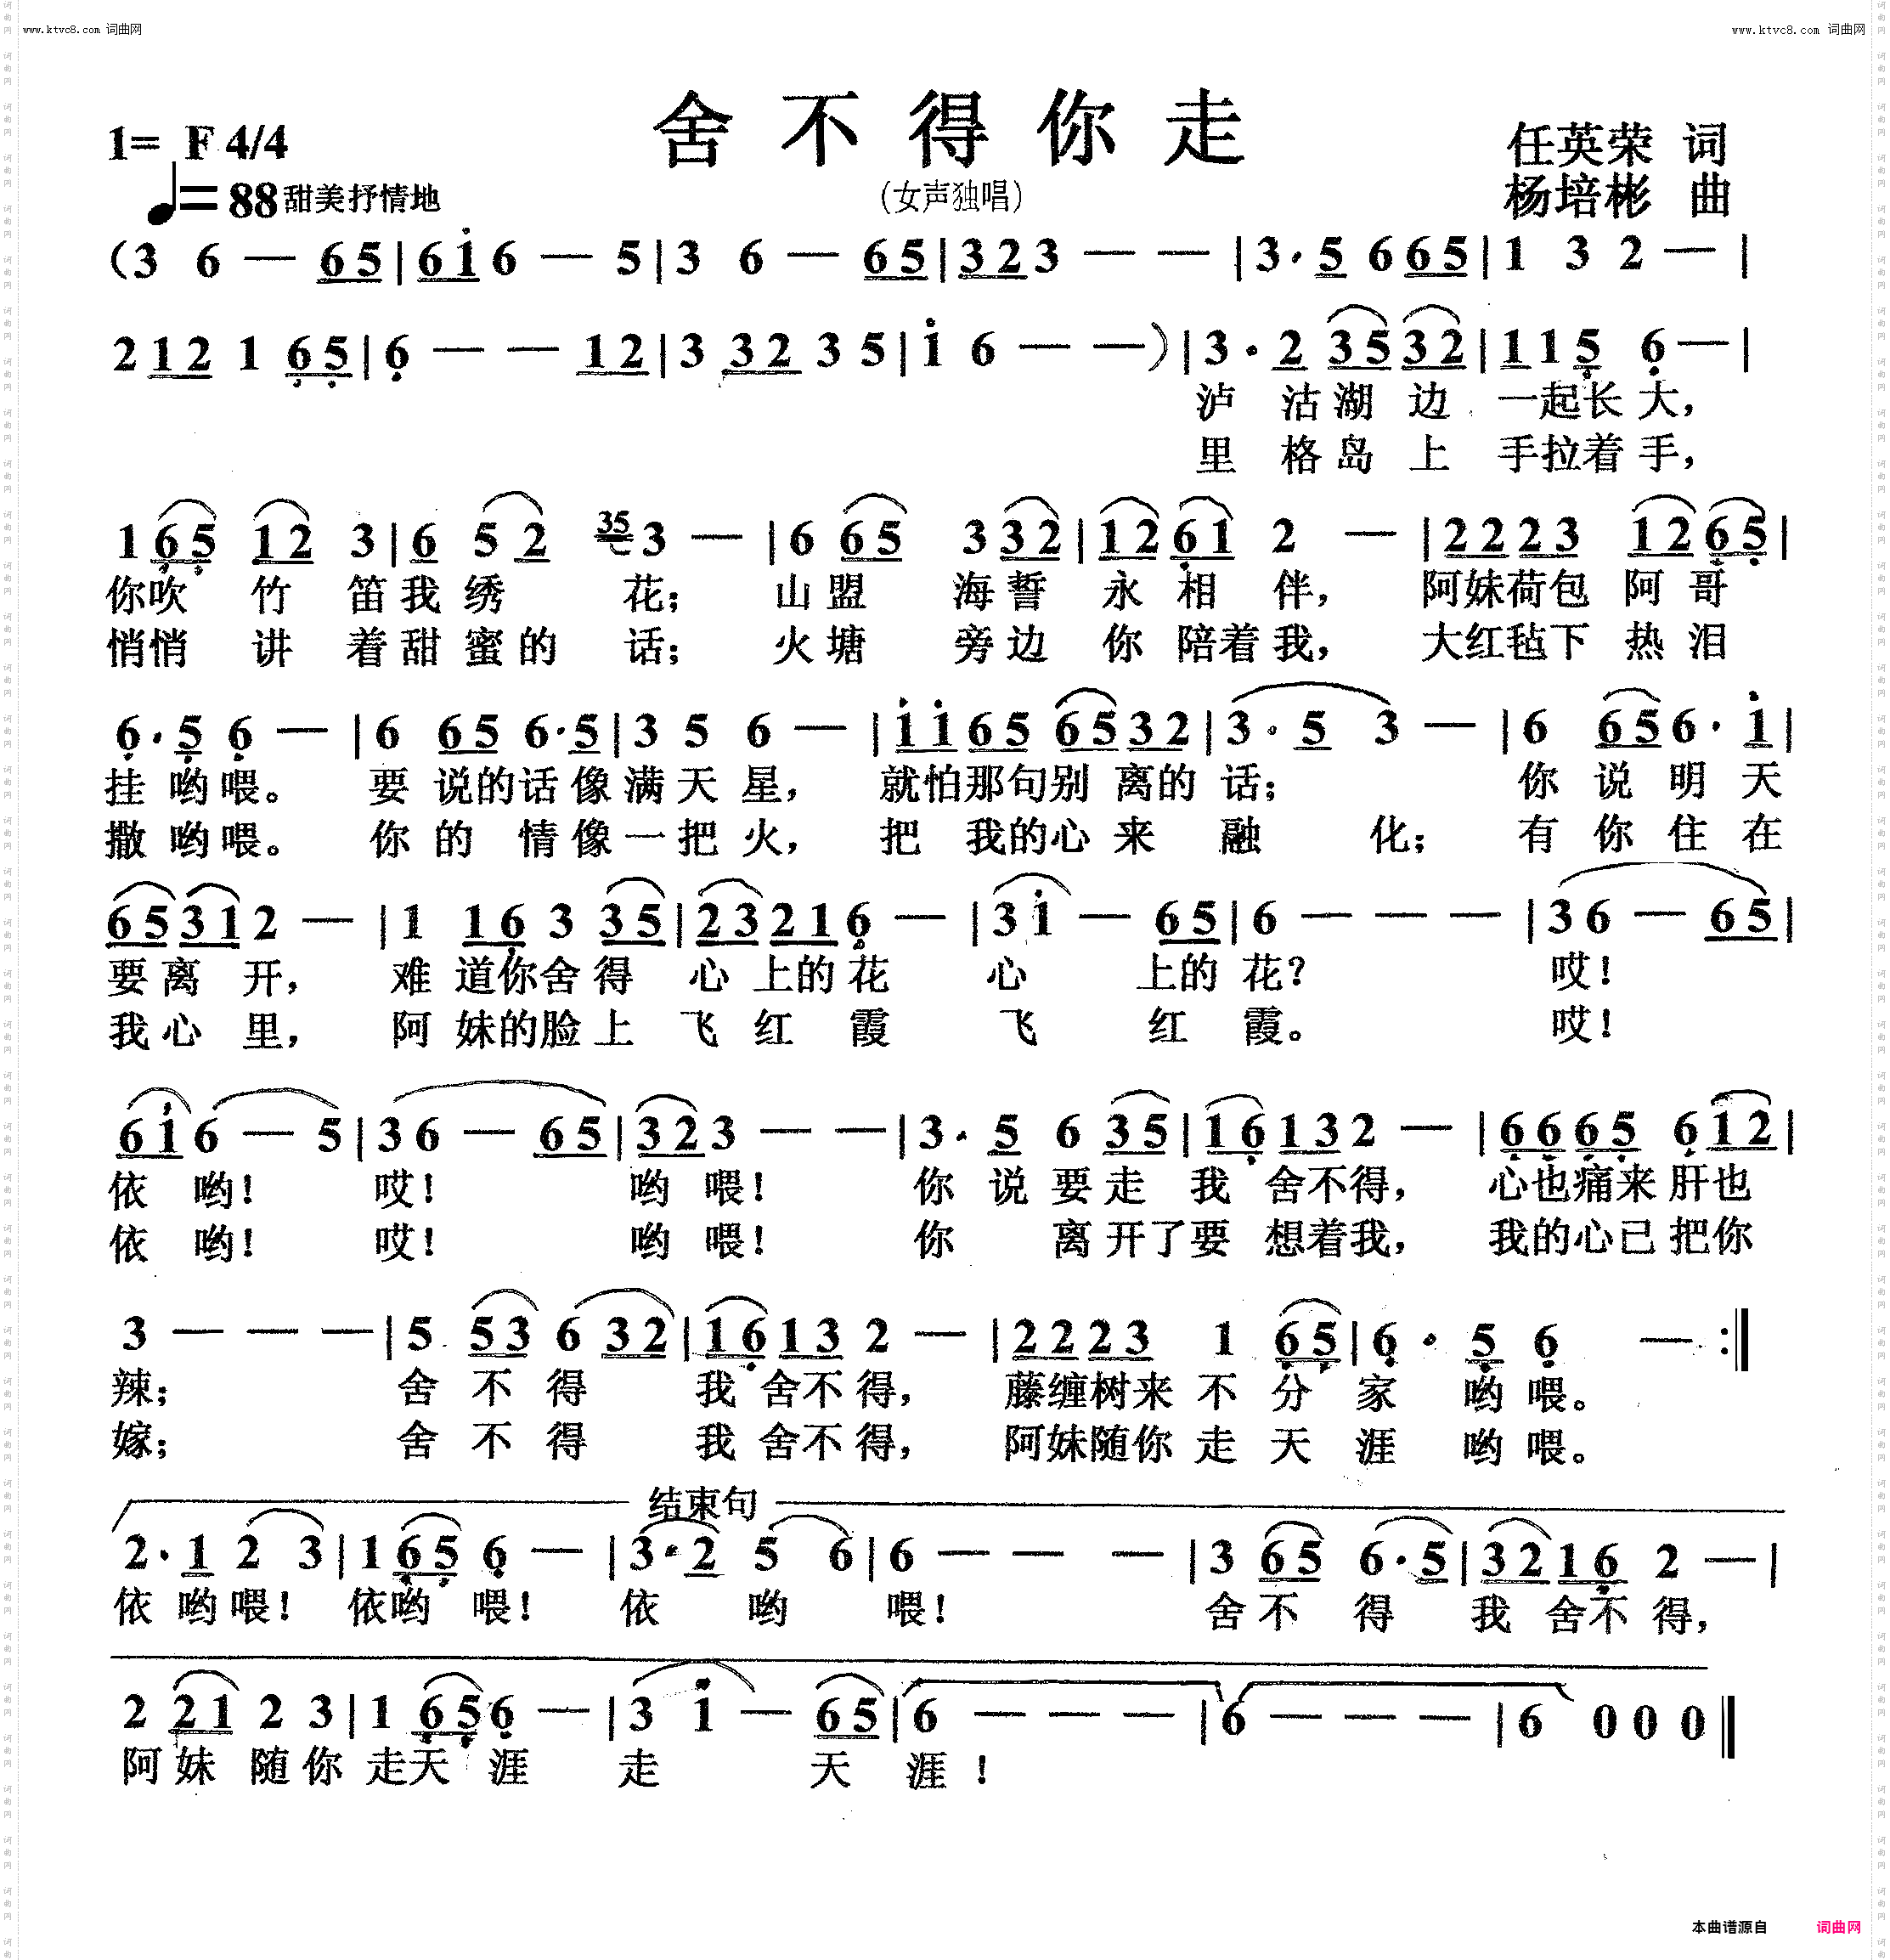 www.ktvc8.com 词曲网
www.ktvc8.com 词曲网
舍不得你走
(女声独唱)
1= F 4/4
♩= 88 甜美抒情地
任英荣 词
杨培彬 曲
(3 6 — 6 5 | 6 1 6 — 5 | 3 6 — 6 5 | 3 2 3 — — | 3 · 5 6 6 5 | 1 3 2 — |
2 1 2 1 6 5 | 6 — — 1 2 | 3 3 2 3 5 | 1 6 — — ) | 3 · 2 3 5 3 2 | 1 1 5 6 — |
泸 沽 湖 边 一起长 大,
里 格 岛 上 手拉着 手,
1 6 5 1 2 3 | 6 5 2 35 3 — | 6 6 5 3 3 2 | 1 2 6 1 2 — | 2 2 2 3 1 2 6 5 |
你吹 竹 笛 我 绣 花; 山 盟 海 誓 永 相 伴, 阿妹荷包 阿 哥
悄悄 讲 着 甜 蜜 的 话; 火 塘 旁 边 你 陪着 我, 大红毡下 热 泪
6 · 5 6 — | 6 6 5 6 · 5 | 3 5 6 — | 1 1 6 5 6 5 3 2 | 3 · 5 3 — | 6 6 5 6 · 1 |
挂 哟 喂。 要 说的话 像 满 天 星, 就怕那句别 离的 话; 你 说 明 天
撒 哟 喂。 你 的 情 像 一 把 火, 把 我的心 来 融 化; 有 你 住 在
6 5 3 1 2 — | 1 1 6 3 3 5 | 2 3 2 1 6 — | 3 1 — 6 5 | 6 — — — | 3 6 — 6 5 |
要 离 开, 难 道你舍 得 心 上的 花 心 上的 花? 哎!
我 心 里, 阿 妹的脸 上 飞 红 霞 飞 红 霞。 哎!
6 1 6 — 5 | 3 6 — 6 5 | 3 2 3 — — | 3 · 5 6 3 5 | 1 6 1 3 2 — | 6 6 6 5 6 1 2 |
依 哟! 哎! 哟 喂! 你 说 要 走 我 舍不得, 心也痛来 肝也
依 哟! 哎! 哟 喂! 你 离 开了要 想着我, 我的心已 把你
3 — — — | 5 5 3 6 3 2 | 1 6 1 3 2 — | 2 2 2 3 1 6 5 | 6 · 5 6 — :‖
辣; 舍 不 得 我 舍不 得, 藤缠树来 不 分 家 哟 喂。
嫁; 舍 不 得 我 舍不 得, 阿妹随你 走 天 涯 哟 喂。
结束句
2 · 1 2 3 | 1 6 5 6 — | 3 · 2 5 6 | 6 — — — | 3 6 5 6 · 5 | 3 2 1 6 2 — |
依 哟 喂! 依哟 喂! 依 哟 喂! 舍 不 得 我 舍不 得,
2 2 1 2 3 | 1 6 5 6 — | 3 1 — 6 5 | 6 — — — | 6 — — — | 6 0 0 0 ‖
阿 妹 随 你 走天 涯 走 天 涯 !
本曲谱源自 词曲网